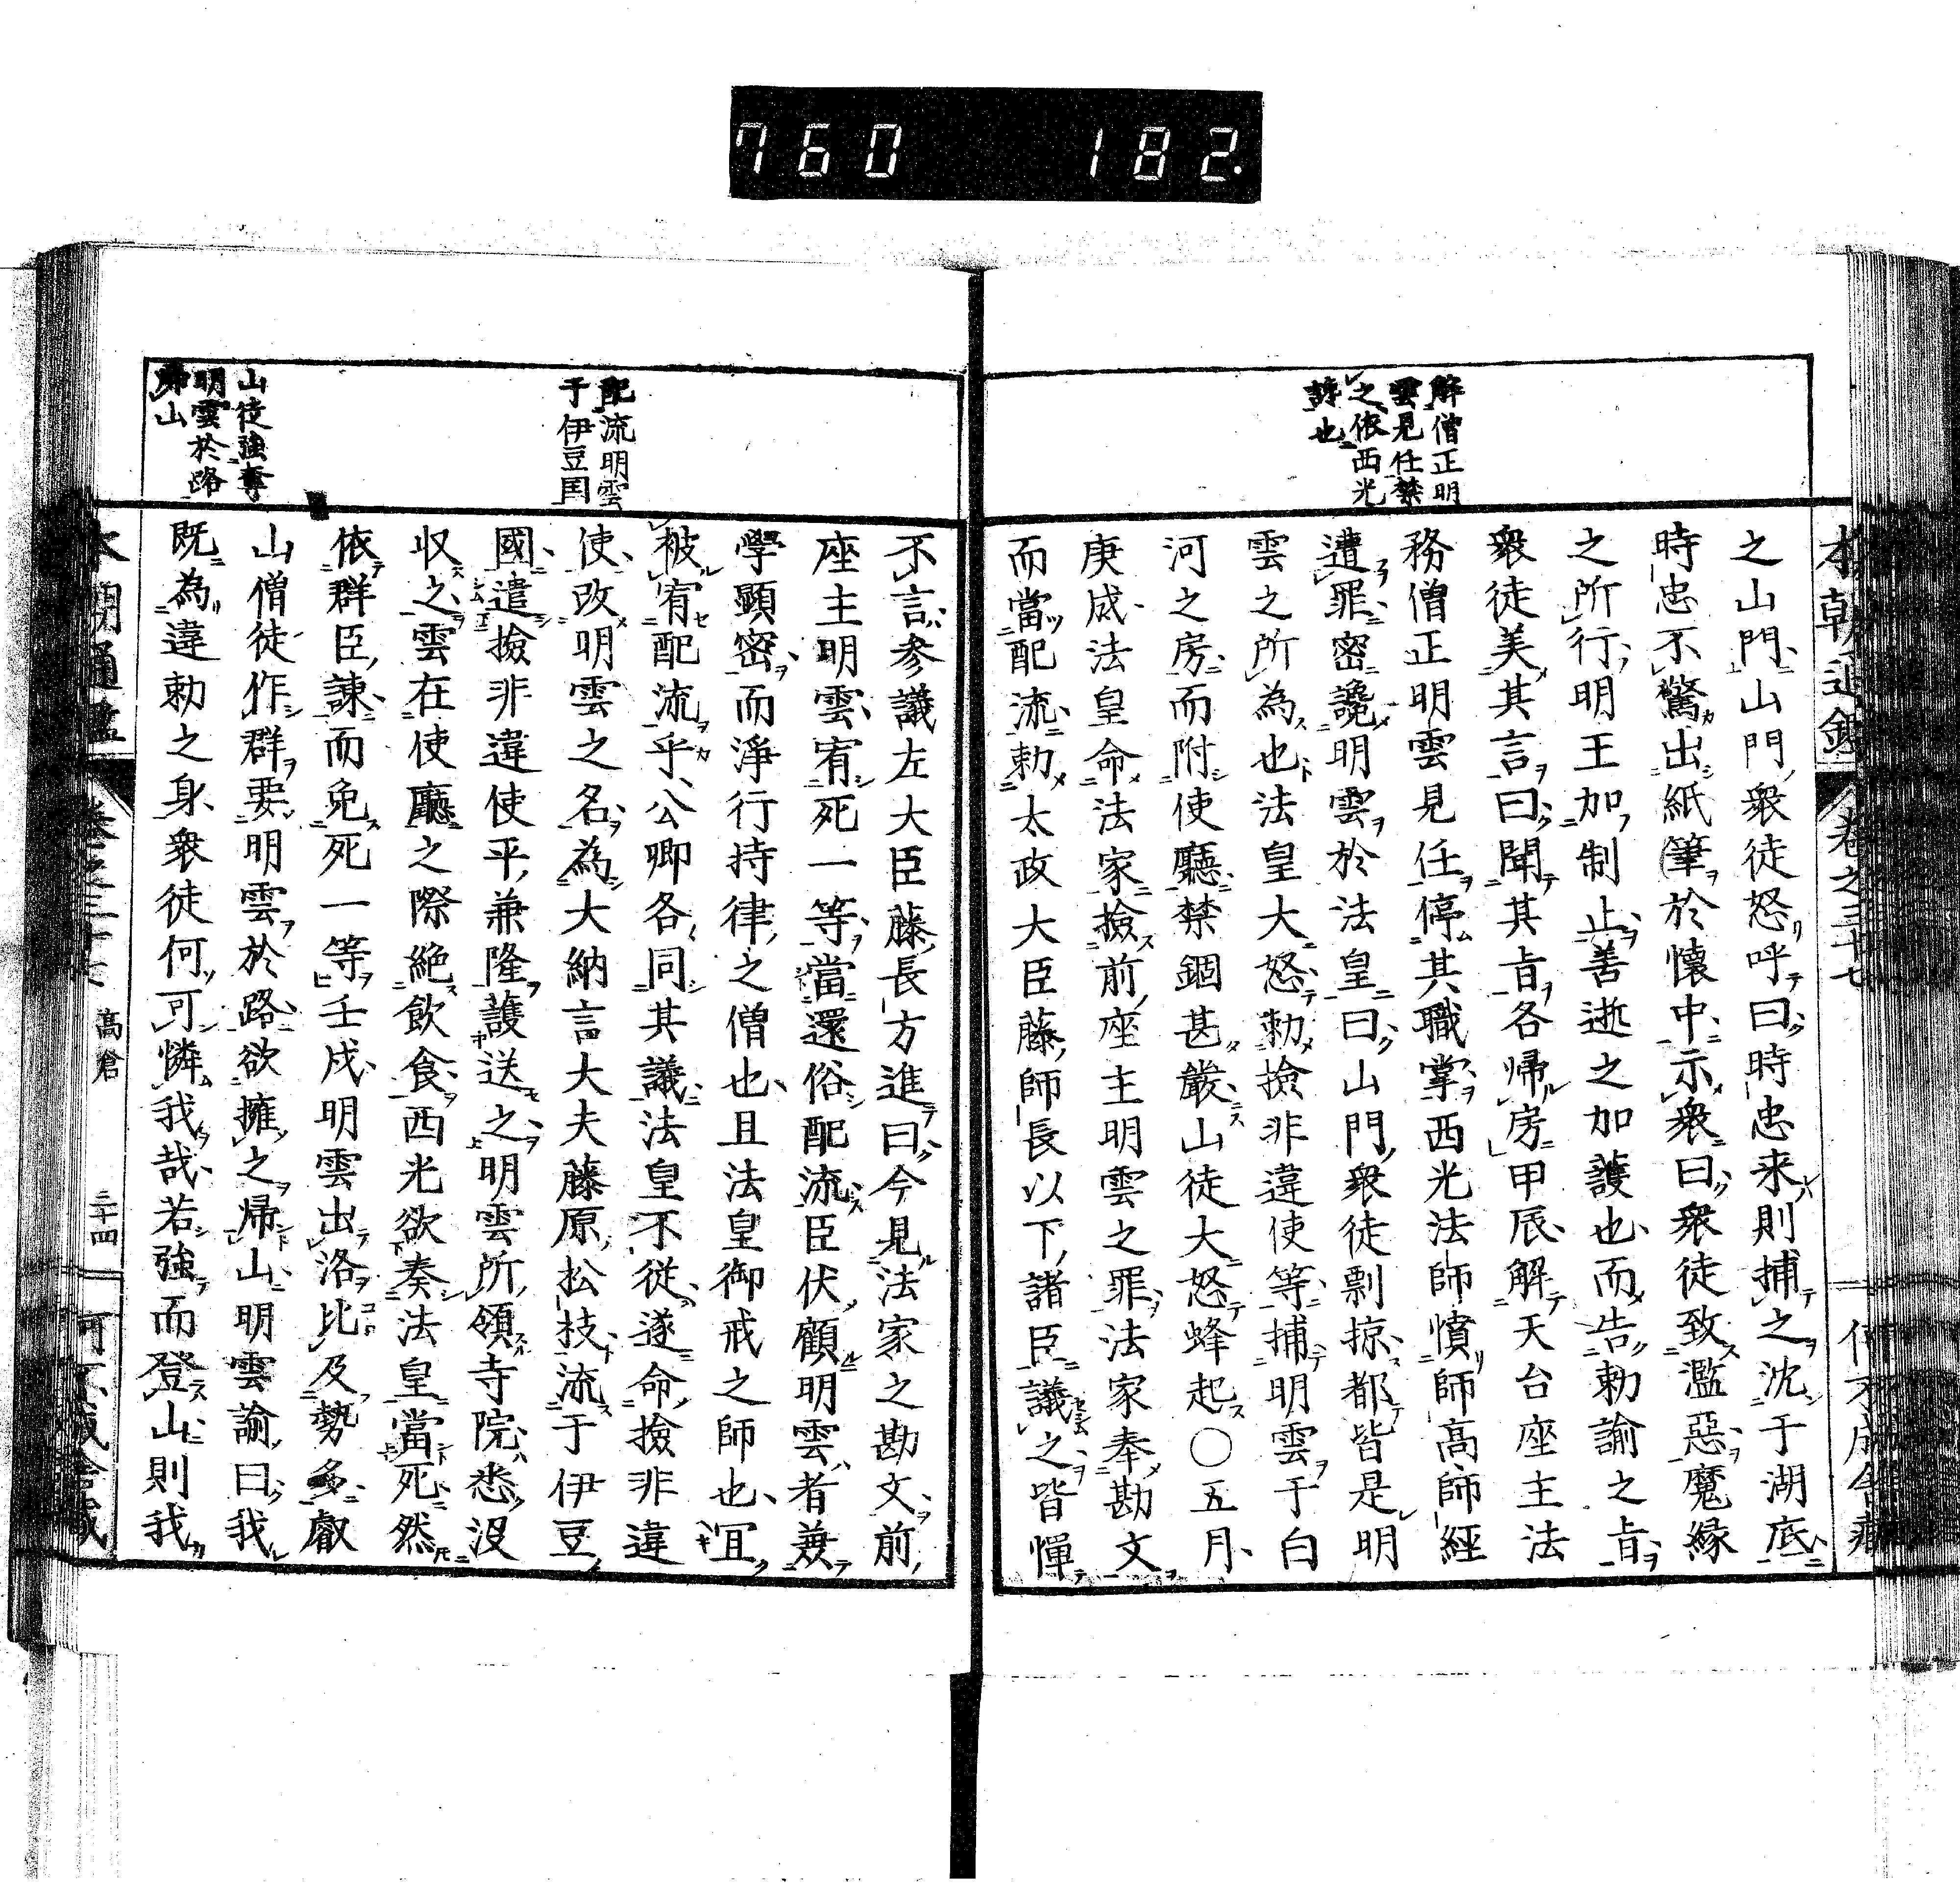 760 182.
解僧正明
雲見任禁
之依西光
讒也
之山門山門衆徒怒呼曰時忠来則捕之沈于湖底
時忠不驚出紙筆於懐中示衆曰衆徒致濫惡魔縁
之所行明王加制止善逝之加護也而告勅諭之旨
衆徒美其言曰聞其旨各帰房甲辰解天台座主法
務僧正明雲見任停其職掌西光法師憤師高師經
遭罪密讒明雲於法皇曰山門衆徒剽掠都皆是明
雲之所為也法皇大怒勅撿非違使等捕明雲于白
河之房而附使廳禁錮甚嚴山徒大怒蜂起〇五月
庚戌法皇命法家撿前座主明雲之罪法家奉勘文
而當配流勅太政大臣藤師長以下諸臣議之皆憚
配流明雲
于伊豆国
山徒強奪
明雲於路
帰山
不言参議左大臣藤長方進曰今見法家之勘文前
座主明雲宥死一等當還俗配流臣伏顧明雲者兼
學顕密而淨行持律之僧也且法皇御戒之師也宜
被宥配流乎公卿各同其議法皇不從遂命撿非違
使改明雲之名為大納言大夫藤原松枝流于伊豆
國遣撿非違使平兼隆護送之明雲所領寺院悉没
収之雲在使廳之際絶飲食西光欲奏法皇當死然
依群臣諫而免死一等壬戌明雲出洛比及勢多叡
山僧徒作群要明雲於路欲擁之帰山明雲諭曰我
既為違勅之身衆徒何可憐我哉若強而登山則我
高倉
三十四